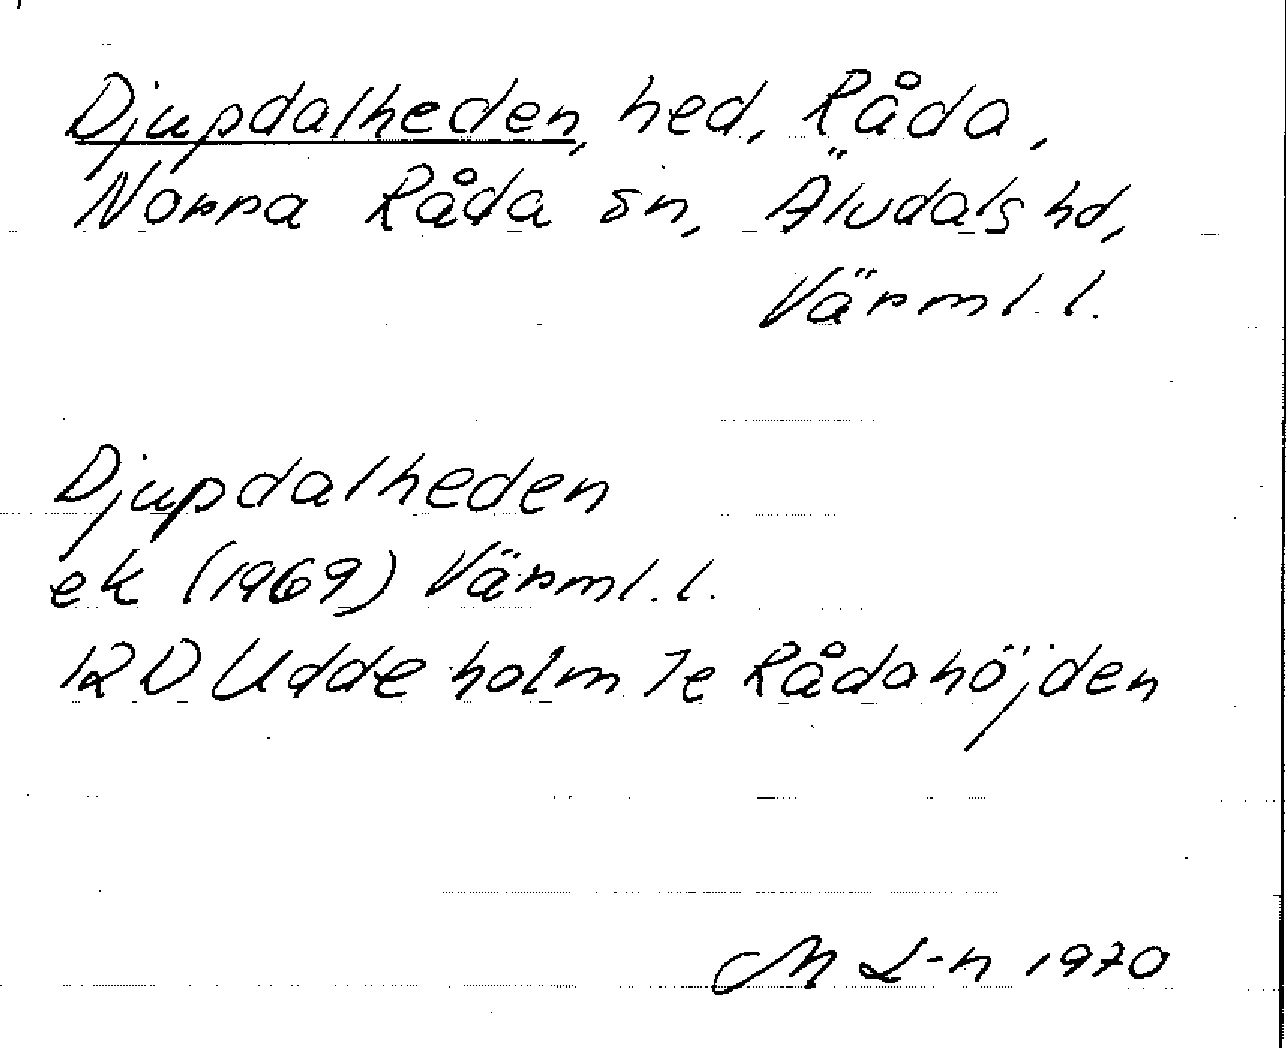 Djupdalheden, hed, Råda,
Norra Råda sn, Älvdals hd,
Värml. l.
Djupdalheden
ek (1969) Värml. l.
12D Uddeholm 7e Rådahöjden
M L-n 1970